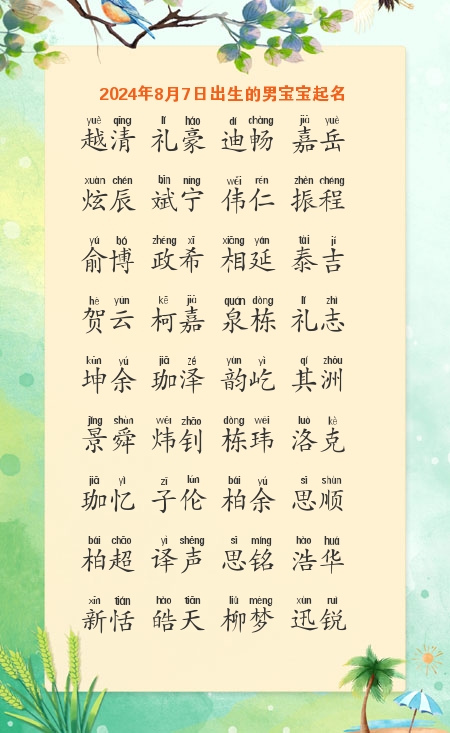 2024年8月7日出生的男宝宝起名
yuè qīng lǐ háo dí chàng jiā yuè
越清 礼豪 迪畅 嘉岳
xuàn chén bīn níng wěi rén zhèn chéng
炫辰 斌宁 伟仁 振程
yú bó zhèng xī xiāng yán tài jí
俞博 政希 相延 泰吉
hè yún kē jiā quán dòng lǐ zhì
贺云 柯嘉 泉栋 礼志
kūn yú jiā zé yùn yì qí zhōu
坤余 珈泽 韵屹 其洲
jǐng shùn wěi zhāo dòng wěi luò kè
景舜 炜钊 栋玮 洛克
jiā yì zǐ lún bǎi yú sī shùn
珈忆 子伦 柏余 思顺
bǎi chāo yì shēng sī míng hào huá
柏超 译声 思铭 浩华
xīn tián hào tiān liǔ mèng xùn ruì
新恬 皓天 柳梦 迅锐